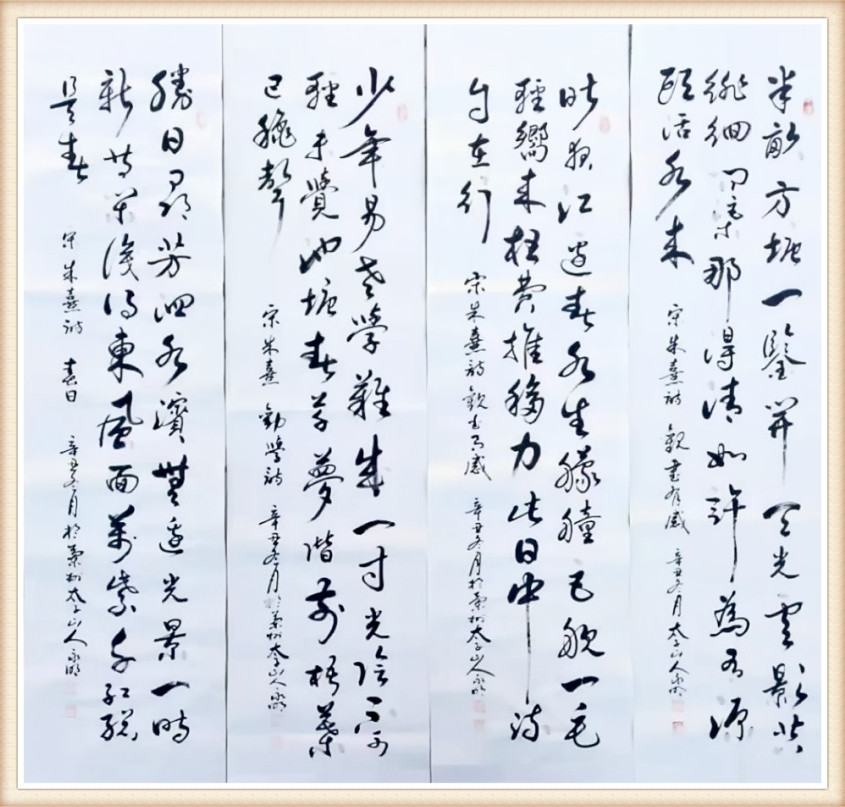 半畝方塘一鑒開天光雲影共
徘徊問渠那得清如許為有源
頭活水來
宋朱熹詩觀書有感辛丑冬月太子山人永明
昨夜江邊春水生艨艟巨艦一毛
輕嚮來枉費推移力此日中流
自在行
宋朱熹詩觀書有感辛丑冬月於蘭州太子山人永明
少年易老學難成一寸光陰不可
輕未覺池塘春草夢階前梧葉
已秋聲
宋朱熹勸學詩辛丑冬月於蘭州太子山人永明
勝日尋芳泗水濱無邊光景一時
新等閒識得東風面萬紫千紅總
是春
宋朱熹詩春日辛丑冬月於蘭州太子山人永明